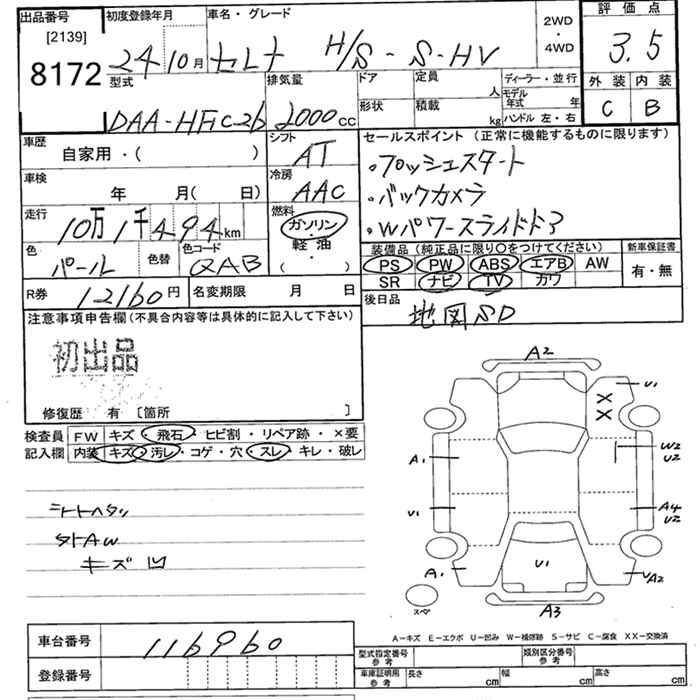 出品番号 初度登録年月 車名・グレード 2WD・4WD 評価点
[2139]
8172 24年10月 セレナ H/S-S-HV 3.5
型式 排気量 ドア 定員 人 ディーラー・並行 外装 内装
DAA-HFC-26 2000cc 形状 積載 kg モデル年式 年 ハンドル 左・右 C B
車歴 自家用・( ) シフト AT セールスポイント (正常に機能するものに限ります)
・プッシュスタート
車検 年 月( 日) 冷房 AAC ・バックカメラ
走行 10万1千494km 燃料 ガソリン・軽油・( ) ・Wパワースライドドア
色 パール 色替 色コード QAB 装備品 (純正品に限り○をつけてください) 新車保証書
PS PW ABS エアB AW 有・無
SR ナビ TV カワ
R券 12160円 名変期限 月 日 後日品
地図SD
注意事項申告欄 (不具合内容等は具体的に記入して下さい)
初出品
修復歴 有 [箇所 ]
検査員 FW キズ・飛石・ヒビ割・リペア跡・×要
記入欄 内装 キズ・汚レ・コゲ・穴・スレ・キレ・破レ
キズ凹
A2
U1
XX
A1 W2 U2
U1 A4 U2
U1
A1 UA2
スペ A3
A-キズ E-エクボ U-凹み W-補修跡 S-サビ C-腐食 XX-交換済
車台番号 116960
登録番号
型式指定番号 参考 類別区分番号 参考
車庫証明用 参考 長さ cm 幅 cm 高さ cm